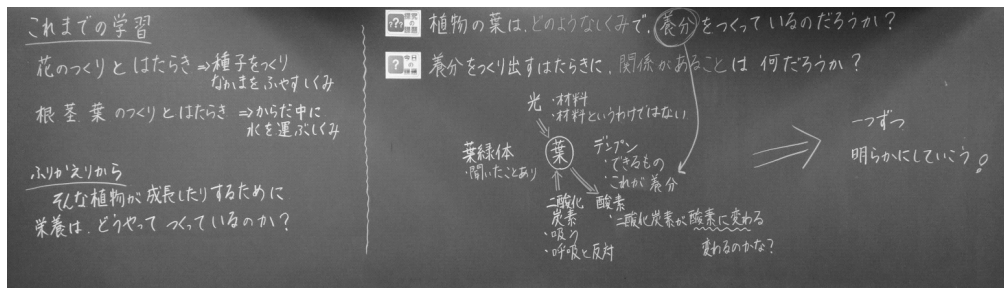 これまでの学習
花のつくりとはたらき⇒種子をつくり
なかまをふやすしくみ
根茎葉のつくりとはたらき⇒からだ中に
水を運ぶしくみ
ふりかえりから
そんな植物が成長したりするために
栄養は、どうやってつくっているのか?
??? 探究の課題
植物の葉は、どのようなしくみで、養分をつくっているのだろうか?
? 今日の課題
養分をつくり出すはたらきに、関係があることは何だろうか?
光
・材料
・材料というわけではない
葉緑体
・聞いたことあり
葉
デンプン
・できるもの
・これが養分
二酸化炭素
・吸う
・呼吸と反対
酸素
・二酸化炭素が酸素に変わる
変わるのかな?
一つずつ
明らかにしていこう!